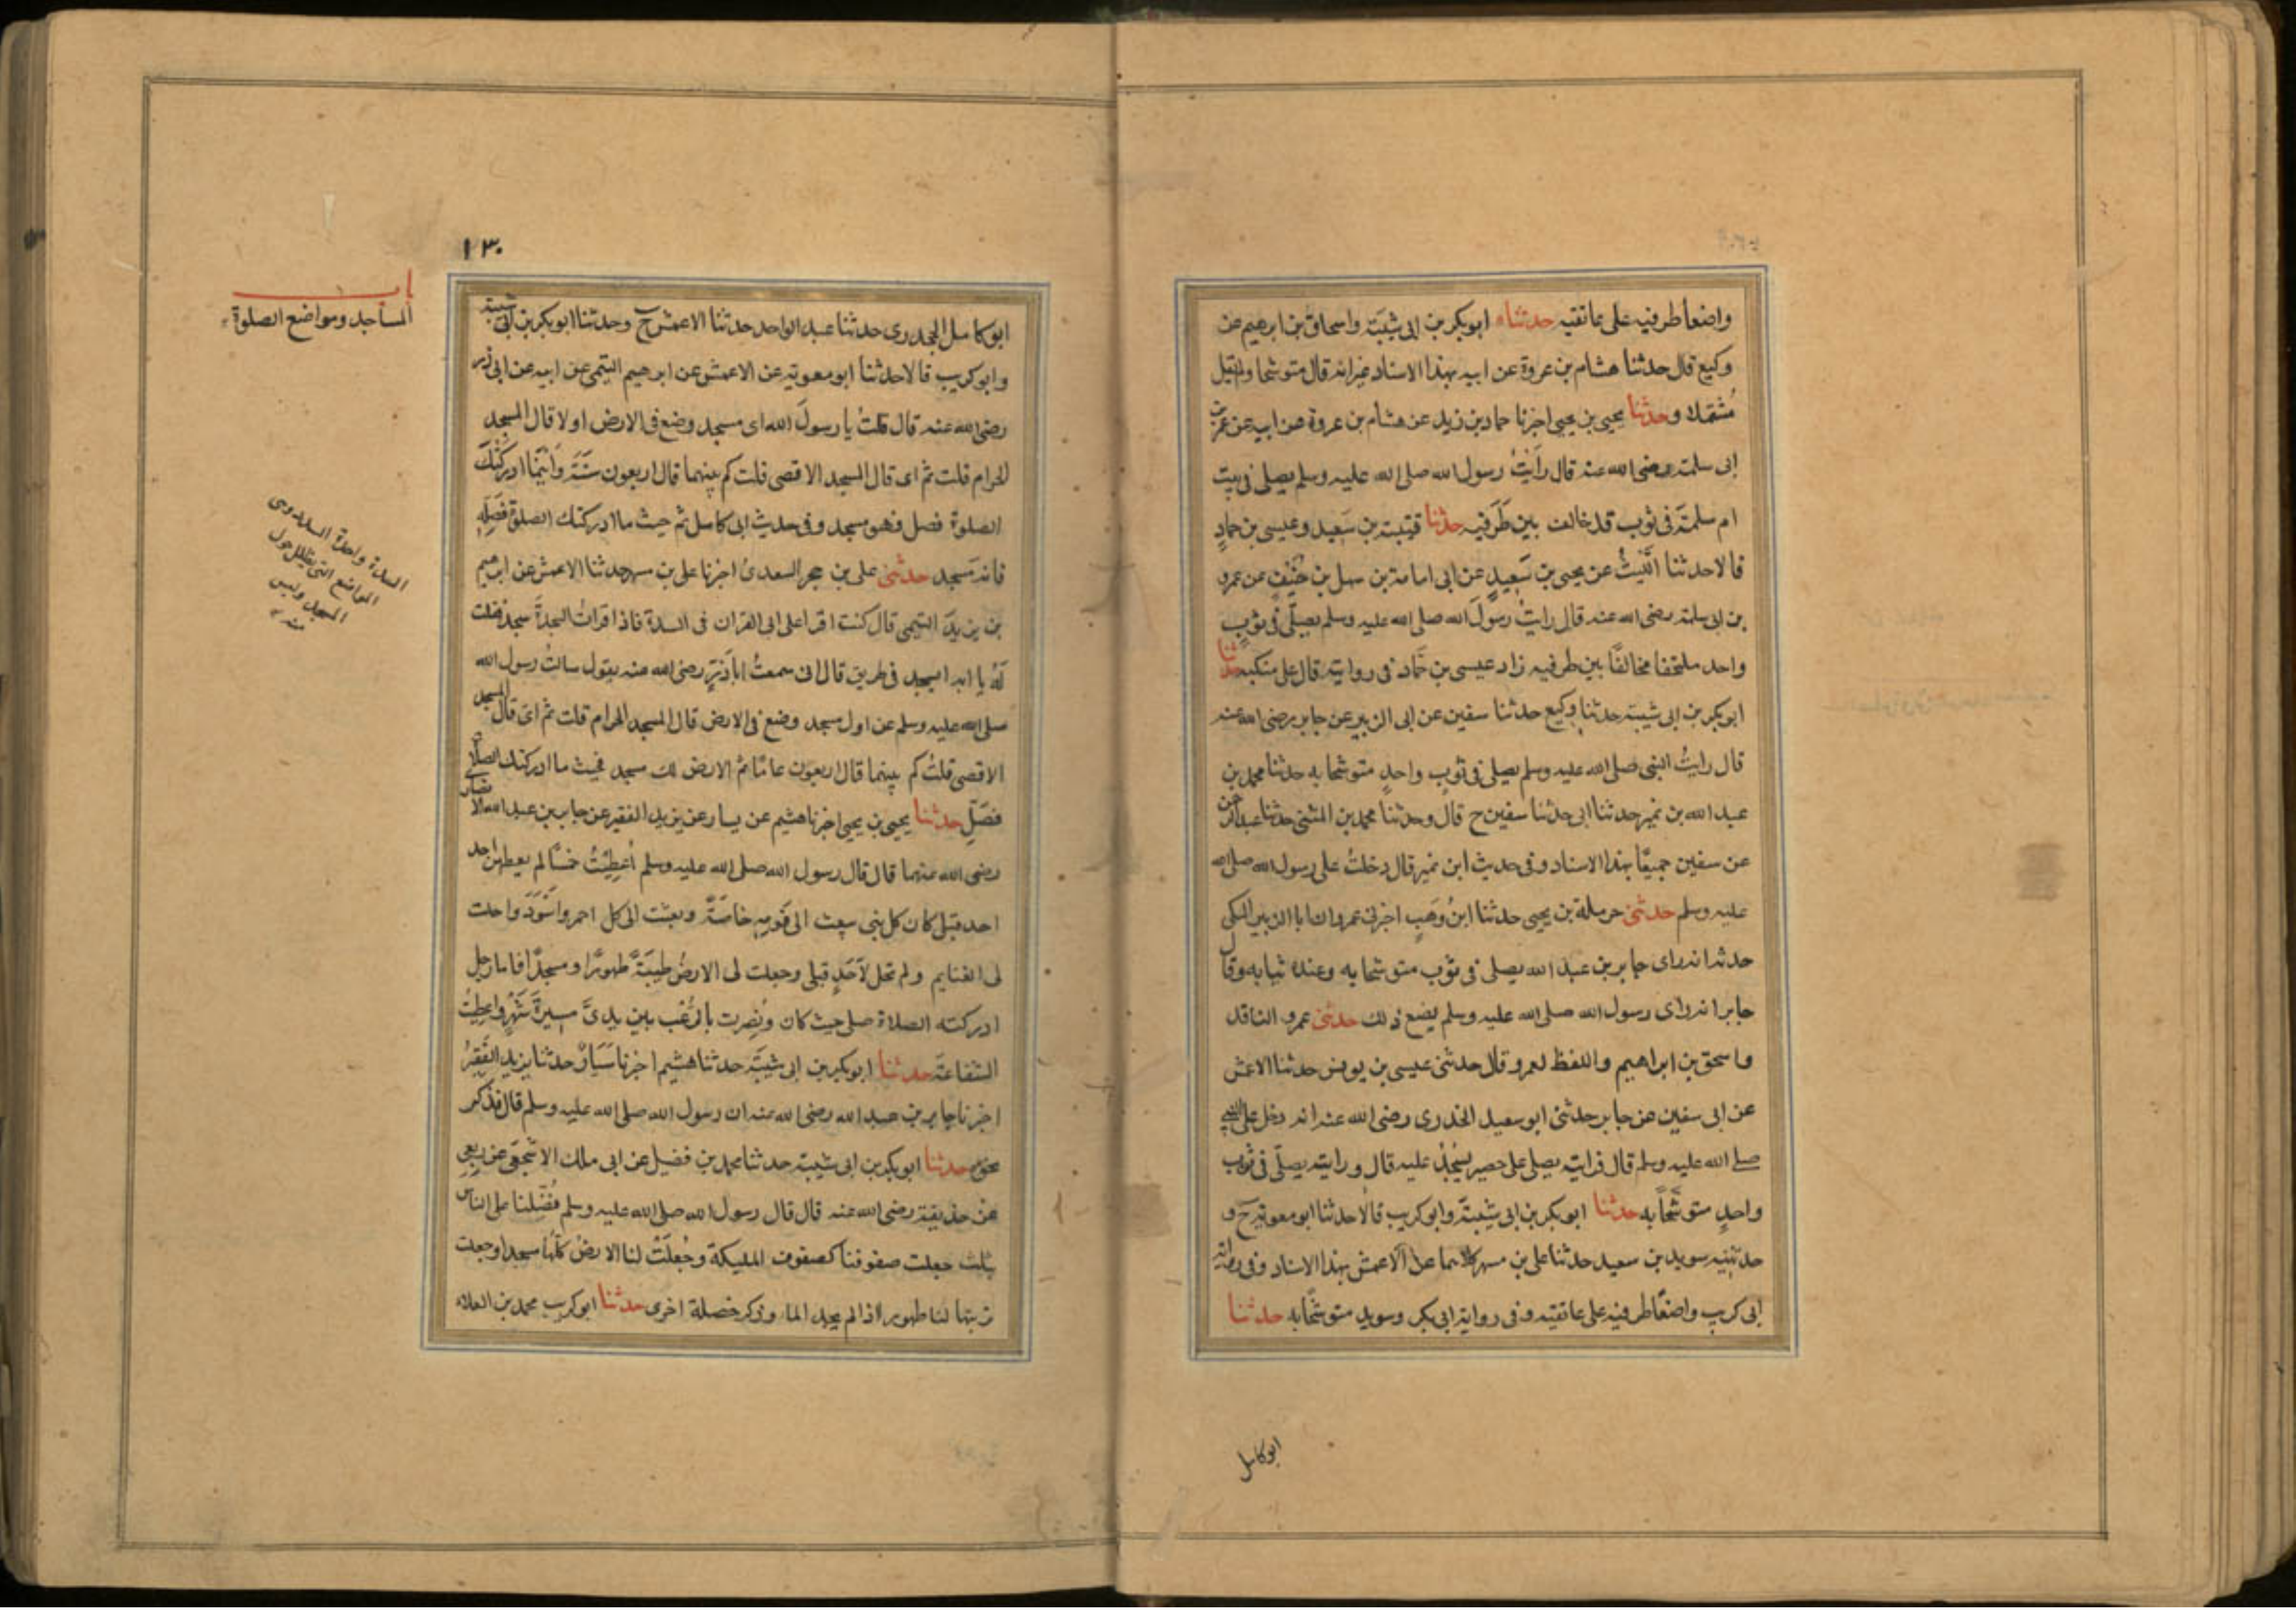 واضعا طرفيه على عاتقيه حدثناه ابوبكر بن ابى شيبة واسحاق بن ابرهيم عن
وكيع قال حدثنا هشام بن عروة عن ابيه بهذا الاسناد غير انه قال متوشحا ولم يقل
مشتملا وحدثنا يحيى بن يحيى اخبرنا حماد بن زيد عن هشام بن عروة عن ابيه عن عمر بن
ابى سلمة رضى الله عنه قال رَاَيْتُ رسول الله صلى الله عليه وسلم يصلى فى بيت
ام سلمة فى ثوب قد خالف بين طَرَفيه حدثنا قتيبة بن سَعيد وعيسى بن حمادٍ
قالا حدثنا اللَّيْثُ عن يحيى بن سَعِيدٍ عن ابى امامة بن سهل بن حُنَيْفٍ عن عمرو
بن ابى سلمة رضى الله عنه قال رايتُ رسولَ الله صلى الله عليه وسلم يصلّى فى ثوبٍ
واحد ملتحفا مخالفًا بين طرفيه زاد عيسى بن حَّماد فى روايته قال على منكبيه حدثنا
ابوبكر بن ابى شيبة حدثنا وكيع حدثنا سفين عن ابى الزبير عن جابر رضى الله عنه
قال رايتُ النبى صلى الله عليه وسلم يصلى فى ثوبٍ واحدٍ متوشحا به حدثنا محمد بن
عبد الله بن نمير حدثنا ابى حدثنا سفين ح قال وحدثنا محمد بن المثنى حدثنا عبد الرحمن
عن سفين جميعًا بهذا الاسناد وفى حديث ابن نمير قال دخلتُ على رسول الله صلى الله
عليه وسلم حدثنى حرملة بن يحيى حدثنا ابنُ وَهَبٍ اخبرنى عمرو ان ابا الزبير المكى
حدثه انه راى جابر بن عبد الله يصلى فى ثوب متوشحا به وعنده ثيابه وقال
جابر انه راى رسول الله صلى الله عليه وسلم يصنع ذلك حدثنى عمرو الناقد
واسحق بن ابراهيم واللفظ لعمرو قال حدثنى عيسى بن يونس حدثنا الاعمش
عن ابى سفين عن جابر حدثنى ابو سعيد الخدرى رضى الله عنه انه دخل على النبى
صلى الله عليه وسلم قال فرايته يصلى على حصير يسْجُدُ عليه قال ورايته يصلّى فى ثوب
واحدٍ متوشّحاً به حدثنا ابوبكر بن ابى شيبة وابوكريب قالا حدثنا ابو معوية ح و
حدثنيه سويد بن سعيد حدثنا على بن مسهر كلاهما عن الاعمش بهذا الاسناد وفى رواية
ابى كريب واضعًا طرفيه على عاتقيه وفى رواية ابى بكر وسويد متوشّحًا به حدثنا
ابوكامل
١٣٠
باب
المساجد ومواضع الصلوة
ابو كامل الجحدرى حدثنا عبد الواحد حدثنا الاعمش ح وحدثنا ابوبكر بن ابى شيبة
وابوكريب قالا حدثنا ابو معوية عن الاعمش عن ابرهيم التيمى عن ابيه عن ابى ذر
رضى الله عنه قال قلتُ يا رسولَ الله اى مسجد وضع فى الارض اولا قال المسجد
الحرام قلت ثم اى قال المسجد الاقصى قلت كم بينهما قال اربعون سَنَة وَاَيْنَما ادركَتْكَ
الصلوة فصل فهو مسجد وفى حديث ابى كامل ثم حيث ما ادركتك الصلوة فَصَلِّهِ
فانه مَسجد حدثنى على بن حجر السعدىُ اخبرنا على بن مسهر حدثنا الاعمش عن ابرهيم
بن يزيدَ التيمى قال كنت اقرا على ابى القران فى السدة فاذا قراتُ السجدةَ سجد فقلت
لَهُ يا ابه اتسجد فى طريق قال انى سمعتُ اباذَرٍّ رضى الله عنه يقول سالتُ رسول الله
صلى الله عليه وسلم عن اول مسجد وضع فى الارض قال المسجد الحرام قلت ثم اىَ قال المسجد
الاقصى قلتُ كم بينهما قال اربعون عامًا ثم الارض لك مسجد فحيث ما ادركتك الصلاة
فصَلِّ حدثنا يحيى بن يحيى اخبرنا هشيم عن يسار عن يزيد الفقير عن جابر بن عبد الله الانصارى
رضى الله عنهما قال قال رسول الله صلى الله عليه وسلم اُعطِيْتُ خمسًا لم يعطهن احد
احد قبلى كان كل نبى يبعث الى قَومِهِ خَاصَةً وبعثت الى كل احمر واَسْوَدَ واحلت
لى الغنايم ولم تحل لاَحَدٍ قبلى وجعلت لى الارضُ طيبَةً طهورًا ومسجدًا فايما رجل
ادركته الصلاة صلى حيث كان ونُصِرت بالرُعْب بين يدىَّ مسيرةَ شَهْرٍ واعطِيتُ
الشفاعةَ حدثنا ابوبكر بن ابى شيبَة حدثنا هشيم اخبرنا سَيَارٌ حدثنا يزيد الفَقِيْرُ
اخبرنا جابر بن عبد الله رضى الله عنه ان رسول الله صلى الله عليه وسلم قال فذكر
نحوه حدثنا ابوبكر بن ابى شيبة حدثنا محمد بن فضيل عن ابى مالك الاشجعى عن ربعى
عن حذيفة رضى الله عنه قال قال رسول الله صلى الله عليه وسلم فُضّلنا على الناس
بثلث جعلت صفوفنا كصفوف المليكة وجُعِلَتْ لنا الارضُ كُلَّهُا مسجدا وجعلت
تربتها لنا طهورا اذا لم يجد الماء وذكر خصلة اخرى حدثنا ابو كريب محمد بن العلاء
السدة واحدة السدد وهى
المواضع التى تظلل حول
المسجد وليس
منه